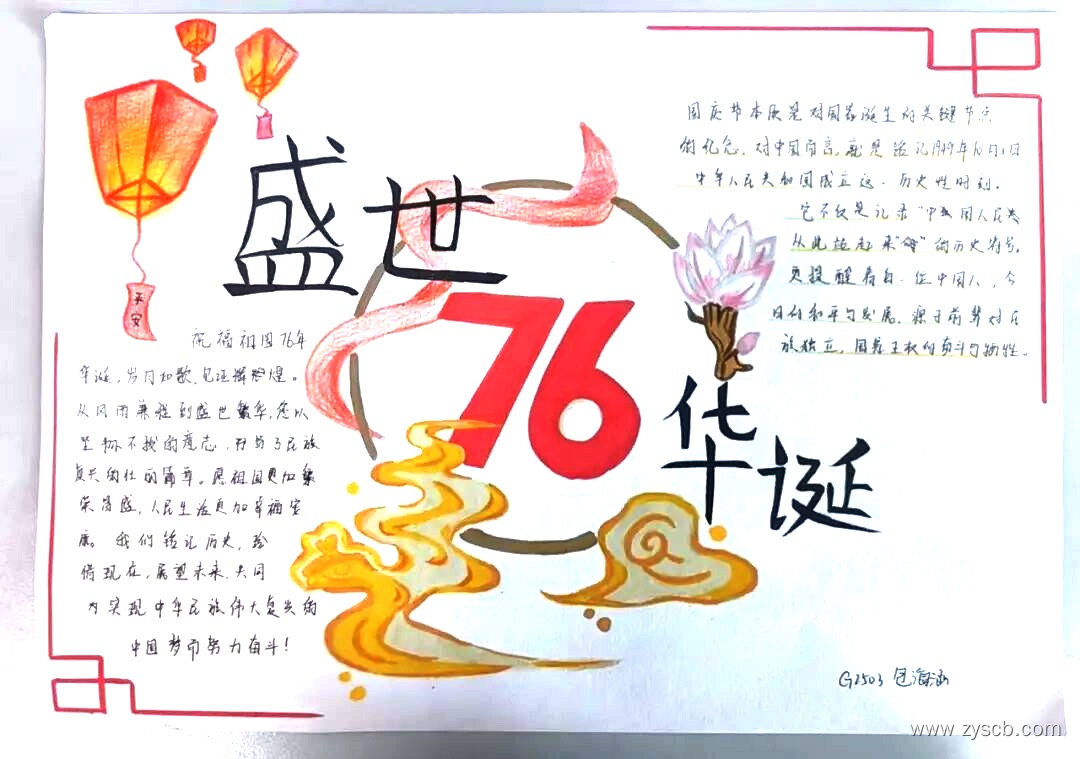 盛世
76
华诞
平安
祝福祖国76年
华诞，岁月如歌，见证辉煌。
从风雨兼程到盛世繁华，您以
坚韧不拔的意志，书写了民族
复兴的壮丽篇章。愿祖国更加繁
荣昌盛，人民生活更加幸福安
康。我们铭记历史，珍
惜现在，展望未来，共同
为实现中华民族伟大复兴的
中国梦而努力奋斗！
国庆节本质是对国家诞生的关键节点
的纪念，对中国而言，就是铭记1949年10月1日
中华人民共和国成立这一历史性时刻。
它不仅是记录“中国人民
从此站起来”的历史符号，
更提醒着每一位中国人，今
日的和平与发展，源于前辈对民
族独立，国家主权的奋斗与牺牲。
G2503 包海涵
www.zyscb.com